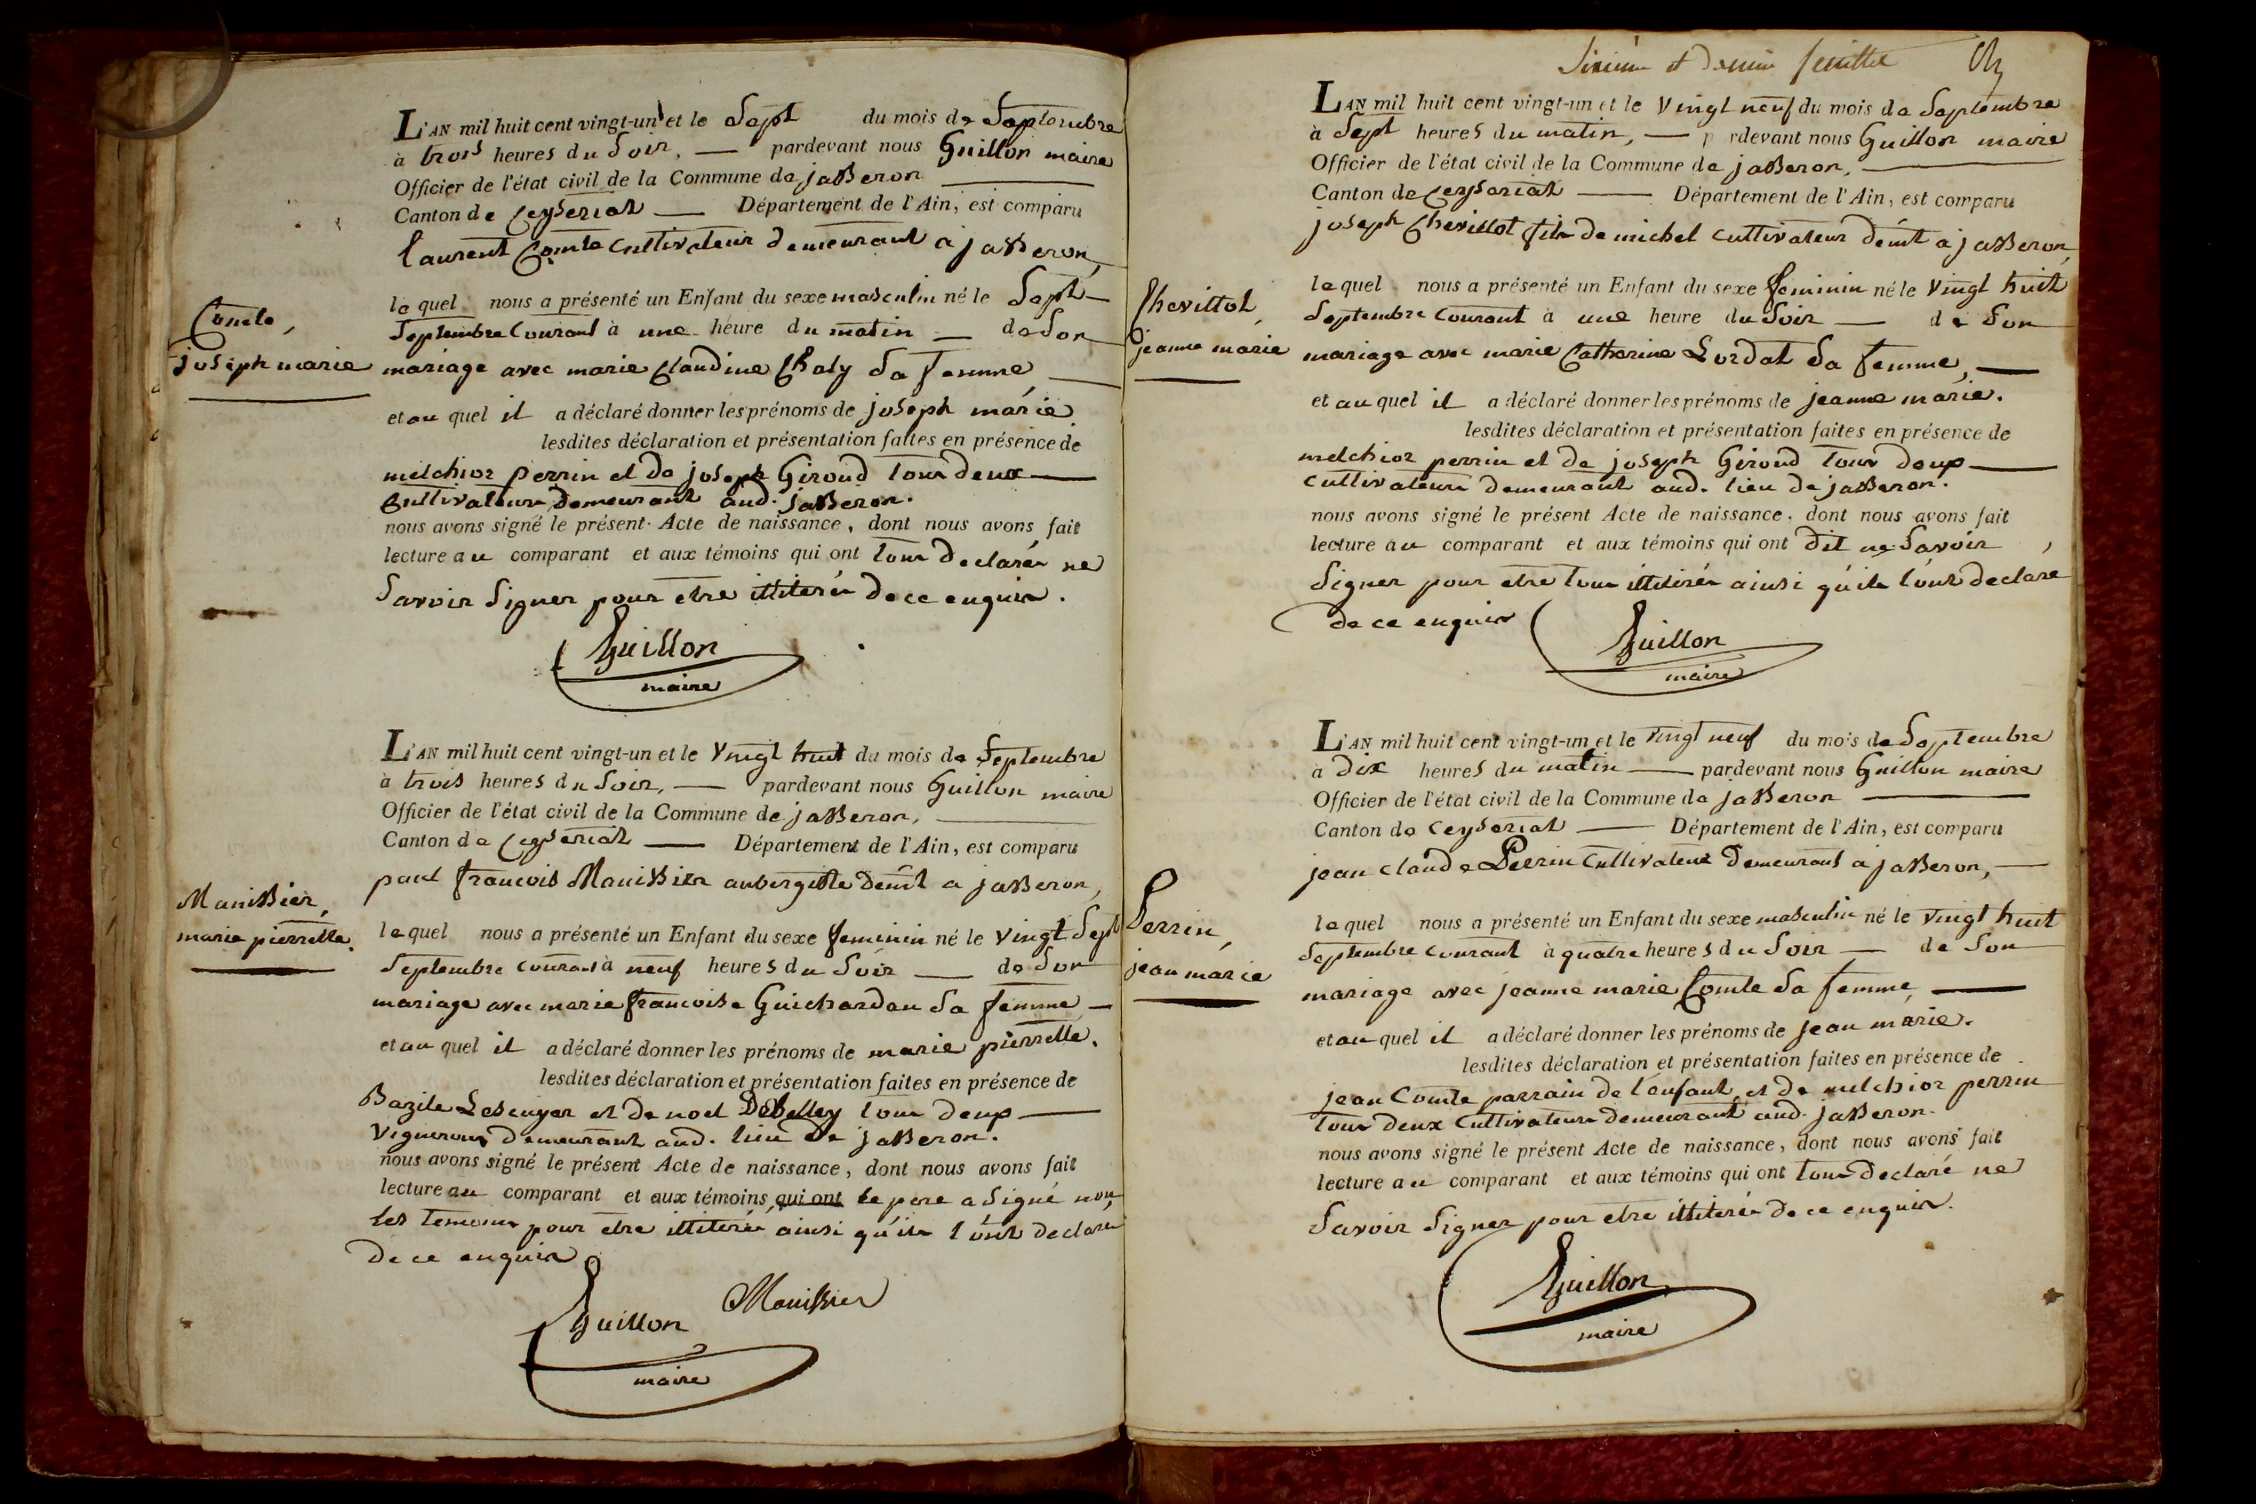 L'AN mil huit cent vingt-un et le Sept du mois de Septembre
à trois heures du Soir, pardevant nous Guillon maire
Officier de l'état civil de la Commune de jasseron
Canton de Ceyseriat Département de l'Ain, est comparu
laurent Comte Cultivateur demeurant a jasseron,
Comte,
joseph marie
le quel nous a présenté un Enfant du sexe masculin né le Sept
Septembre Courant à une heure du matin de Son
mariage avec marie Claudine Chaly Sa femme,
et au quel il a déclaré donner les prénoms de joseph marie.
lesdites déclaration et présentation faites en présence de
melchior perrin et de joseph Giroud tous deux
Cultivateurs demeurant aud. jasseron.
nous avons signé le présent Acte de naissance, dont nous avons fait
lecture au comparant et aux témoins qui ont tous declarés ne
Savoir Signer pour etre illiterés de ce enquis.
Guillon
maire
L'AN mil huit cent vingt-un et le Vingt huit du mois de Septembre
à trois heures du Soir, pardevant nous Guillon maire
Officier de l'état civil de la Commune de jasseron,
Canton de Ceyseriat Département de l'Ain, est comparu
paul francois Manissier aubergiste demt a jasseron,
Manissier,
marie pierrette.
le quel nous a présenté un Enfant du sexe feminin né le Vingt Sept
Septembre courant à neuf heures du Soir de Son
mariage avec marie francoise Guichardan Sa femme,
et au quel il a déclaré donner les prénoms de marie pierrette.
lesdites déclaration et présentation faites en présence de
Bazile Lescuyer et de noel Debelley tous deup
Vignerons demeurant aud. lieu de jasseron.
nous avons signé le présent Acte de naissance, dont nous avons fait
lecture au comparant et aux témoins, qui ont le pere a Signé non
les temoins pour etre illiterés ainsi qu'ils l'ont declarés
de ce enquis
Guillon Manissier
maire
Sixième et dernier feuillet
L'AN mil huit cent vingt-un et le Vingt neuf du mois de Septembre
à Sept heures du matin, p rdevant nous Guillon maire
Officier de l'état civil de la Commune de jasseron,
Canton de Ceyseriat Département de l'Ain, est comparu
joseph Chevillot fils de michel cultivateur demt a jasseron,
Chevillot,
jeanne marie
le quel nous a présenté un Enfant du sexe feminin né le Vingt huit
Septembre Courant à une heure du Soir de Son
mariage avec marie Catherine Lordat Sa femme,
et au quel il a déclaré donner les prénoms de jeanne marie.
lesdites déclaration et présentation faites en présence de
melchior perrin et de joseph Giroud tous deup
cultivateurs demeurant aud. lieu de jasseron.
nous avons signé le présent Acte de naissance, dont nous avons fait
lecture au comparant et aux témoins qui ont dit ne Savoir,
Signer pour etre tous illiterés ainsi qu'ils l'ont declare
de ce enquis
Guillon
maire
L'AN mil huit cent vingt-un et le vingt neuf du mois de Septembre
à Dix heures du matin pardevant nous Guillon maire
Officier de l'état civil de la Commune de jasseron
Canton de Ceyseriat Département de l'Ain, est comparu
jean Claude Perrin Cultivateur demeurant a jasseron,
Perrin,
jean marie
le quel nous a présenté un Enfant du sexe masculin né le vingt huit
Septembre courant à quatre heures du Soir de Son
mariage avec jeanne marie Comte Sa femme,
et au quel il a déclaré donner les prénoms de jean marie.
lesdites déclaration et présentation faites en présence de
jean Comte parrain de l'enfant, et de melchior perrin
tous deux Cultivateurs demeurant aud. jasseron.
nous avons signé le présent Acte de naissance, dont nous avons fait
lecture au comparant et aux témoins qui ont tous declaré ne
Savoir Signer pour etre illiterés de ce enquis.
Guillon
maire